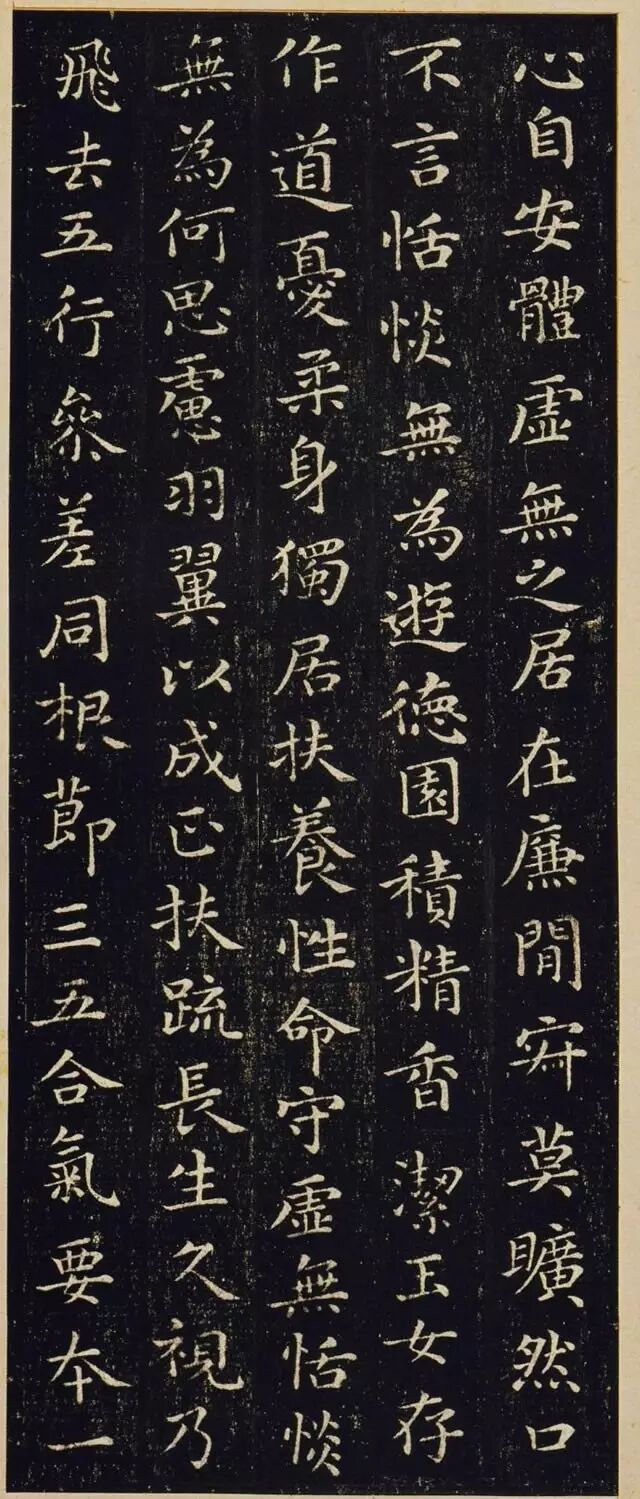 心自安體虛無之居在廉間寂莫曠然口
不言恬惔無為遊德園積精香潔玉女存
作道憂柔身獨居扶養性命守虛無恬惔
無為何思慮羽翼以成正扶疏長生久視乃
飛去五行參差同根節三五合氣要本一